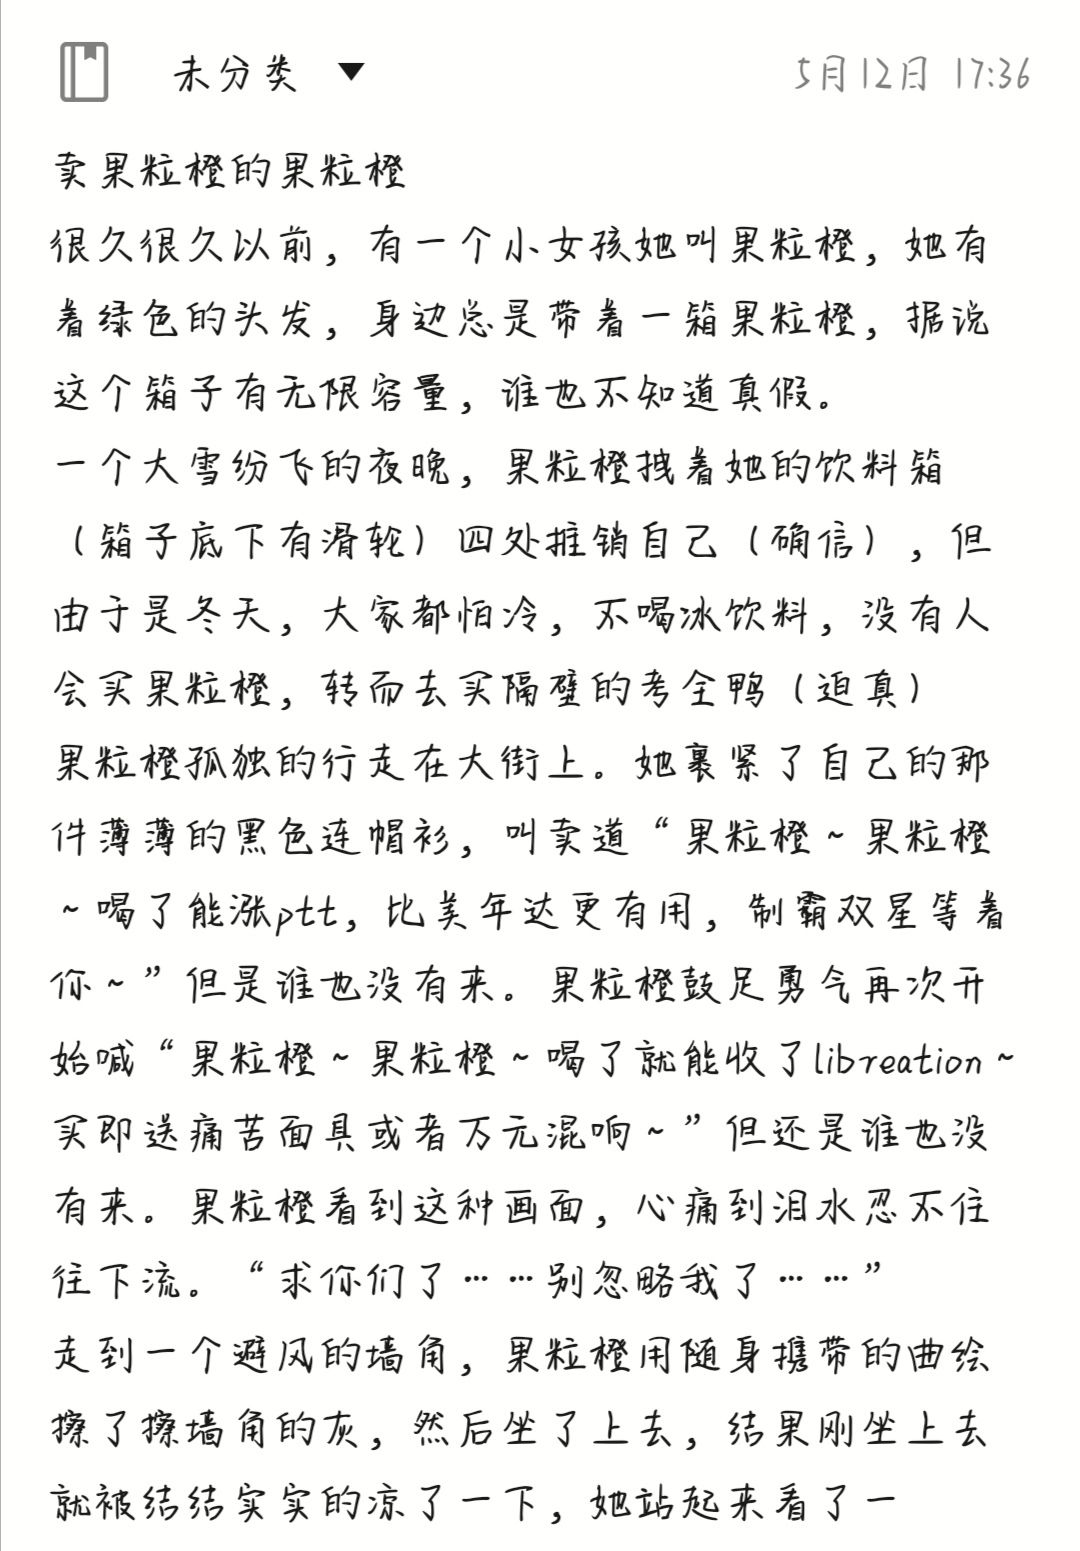 未分类 ▼ 5月12日 17:36
卖果粒橙的果粒橙
很久很久以前，有一个小女孩她叫果粒橙，她有
着绿色的头发，身边总是带着一箱果粒橙，据说
这个箱子有无限容量，谁也不知道真假。
一个大雪纷飞的夜晚，果粒橙拽着她的饮料箱
（箱子底下有滑轮）四处推销自己（确信），但
由于是冬天，大家都怕冷，不喝冰饮料，没有人
会买果粒橙，转而去买隔壁的考全鸭（迫真）
果粒橙孤独的行走在大街上。她裹紧了自己的那
件薄薄的黑色连帽衫，叫卖道“果粒橙~果粒橙
~喝了能涨ptt，比美年达更有用，制霸双星等着
你~”但是谁也没有来。果粒橙鼓足勇气再次开
始喊“果粒橙~果粒橙~喝了就能收了libreation~
买即送痛苦面具或者万元混响~”但还是谁也没
有来。果粒橙看到这种画面，心痛到泪水忍不住
往下流。“求你们了……别忽略我了……”
走到一个避风的墙角，果粒橙用随身携带的曲绘
擦了擦墙角的灰，然后坐了上去，结果刚坐上去
就被结结实实的凉了一下，她站起来看了一